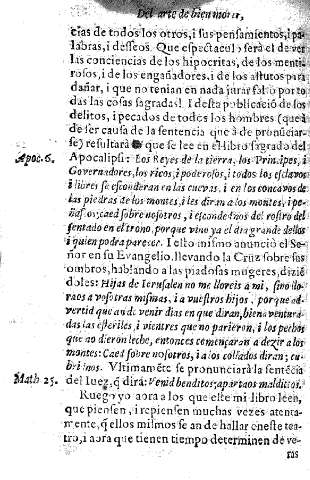 Del arte de bien morir,
cias de todos los otros, i sus pensamientos, i pa-
labras, i desseos. Que espectaculo serà el de ver
las conciencias de los hipocritas, de los menti-
rosos, i de los engañadores, i de los astutos para
dañar, i que no tenian en nada jurar falso por to-
das las cosas sagradas! I desta publicaciõ de los
delitos, i pecados de todos los hombres (que à
de ser causa de la sentencia que à de pronũciar-
se) resultarà que se lee en el libro sagrado del
Apoc. 6.
Apocalipsi: Los Reyes de la tierra, los Principes, i
Governadores, los ricos, i poderosos, i todos los esclavos
i libres se esconderan en las cuevas, i en los concavos de
las piedras de los montes, i les diran a los montes, i pe-
ñascos; caed sobre nosotros, i escondednos del rostro del
sentado en el trono, porque vino ya el dia grande dellos
i quien podra parecer. I esto mismo anunciò el Se-
ñor en su Evangelio, llevando la Crùz sobre sus
ombros, hablando a las piadosas mugeres, diziẽ
doles: Hijas de Ierusalen no me lloreis a mi, sino llo-
raos a vosotras mismas, i a vuestros hijos, porque ad-
vertid que an de venir dias en que diran, bienaventura-
das las esteriles, i vientres que no parieron, i los pechos
que no dieron leche, entonces començaran a dezir a los
montes: Caed sobre nosotros, i a los collados diran; cu-
brinos. Vltimamẽte se pronunciarà la sentẽcia
Math 25.
del Iuez, q̃ dirà: Venid benditos; apartaos malditos.
Ruego yo aora a los que este mi libro leen,
que piensen, i repiensen muchas vezes atenta-
mente, q̃ ellos mismos se an de hallar en este tea-
tro, i aora que tienen tiempo determinen de ve-
ras